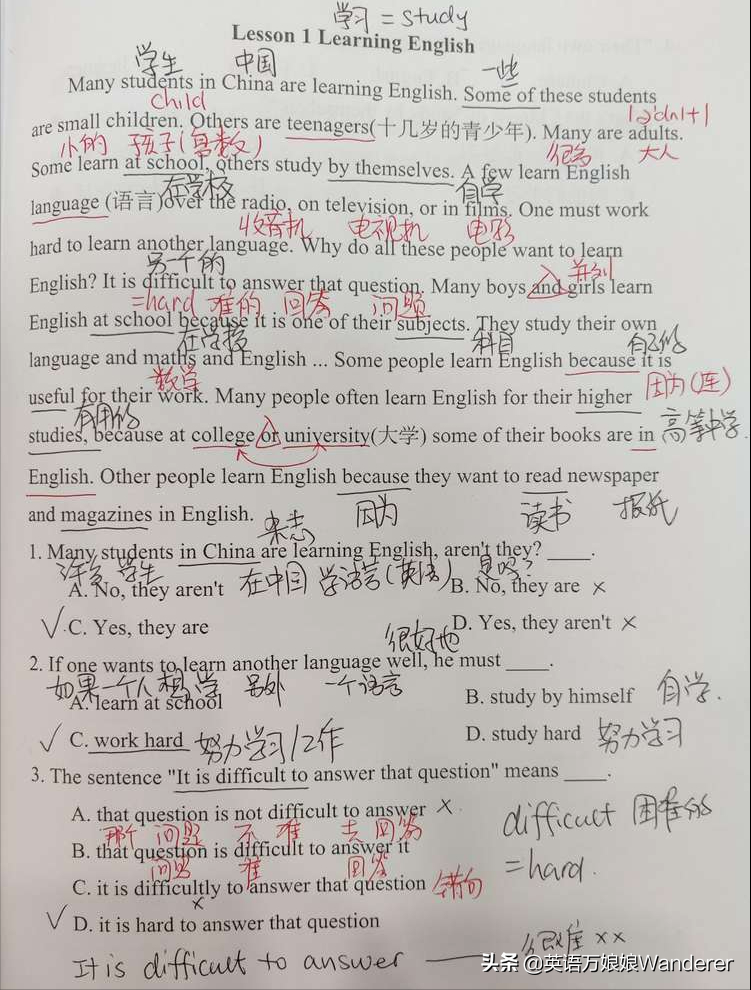 学习 = study
Lesson 1 Learning English
学生 中国 一些
Many students in China are learning English. Some of these students
child
are small children. Others are teenagers(十几岁的青少年). Many are adults.
小的 孩子(复数) 很多 大人
Some learn at school, others study by themselves. A few learn English
在学校 自学
language (语言)over the radio, on television, or in films. One must work
收音机 电视机 电影
hard to learn another language. Why do all these people want to learn
另一个的
English? It is difficult to answer that question. Many boys and girls learn
并列
=hard 难的 回答 问题
English at school because it is one of their subjects. They study their own
在学校 科目 自己的
language and maths and English ... Some people learn English because it is
数学
useful for their work. Many people often learn English for their higher
因为(连)
有用的
studies, because at college or university(大学) some of their books are in
高等中学.
English. Other people learn English because they want to read newspaper
and magazines in English.
杂志 因为 读书 报纸
1. Many students in China are learning English, aren't they? ____.
许多 学生 在中国 学语言(英语) 是吗?
A. No, they aren't B. No, they are ×
√ C. Yes, they are D. Yes, they aren't ×
很好地
2. If one wants to learn another language well, he must ____.
如果一个人想学 另外 一个语言
A. learn at school B. study by himself 自学.
√ C. work hard 努力学习/工作 D. study hard 努力学习
3. The sentence "It is difficult to answer that question" means ____.
A. that question is not difficult to answer ×
那个 问题 不 难 去 回答
difficult 困难的
B. that question is difficult to answer it
问题 难 回答
=hard.
C. it is difficultly to answer that question 错句
×
√ D. it is hard to answer that question
It is difficult to answer —— 很难 ××
头条 @英语万娘娘Wanderer